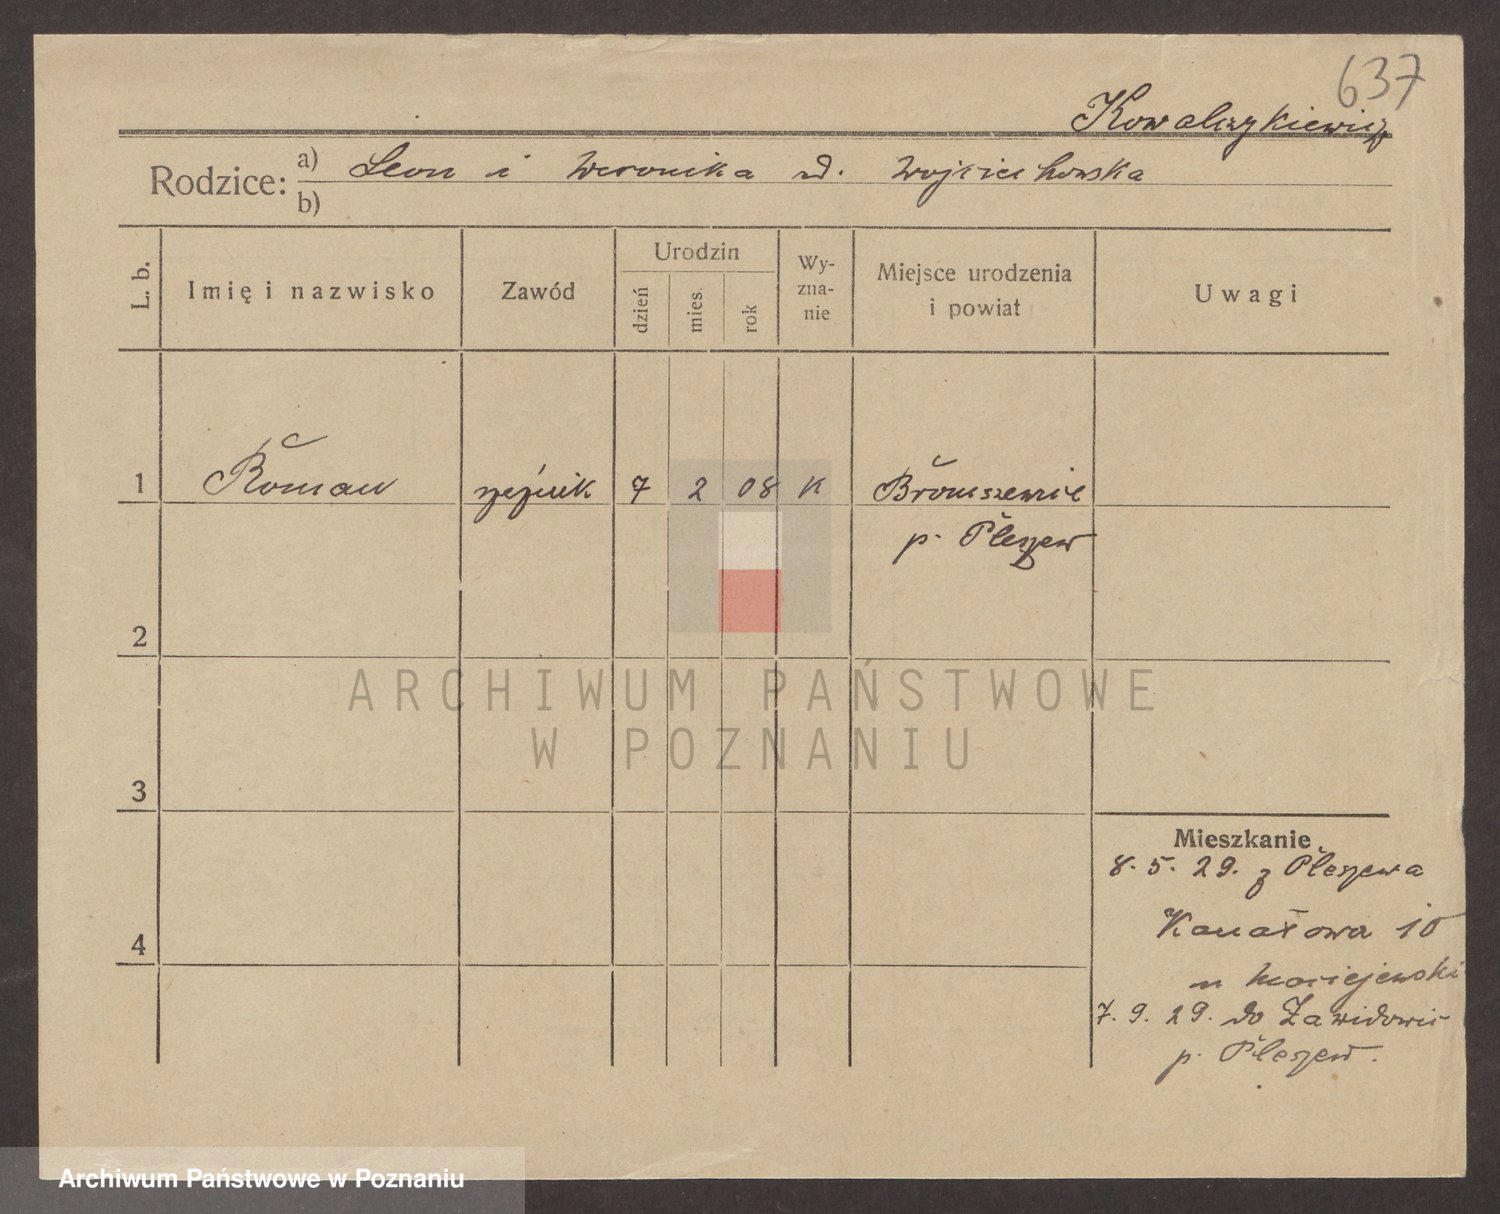 637
Kowalczykiewicz
Rodzice: a) Leon i Weronika ur. Wojciechowska
b)
L. b.
Imię i nazwisko
Zawód
Urodzin
dzień
mies.
rok
Wy-
zna-
nie
Miejsce urodzenia
i powiat
Uwagi
1 Roman rzeźnik 7 2 08 K Broniszewic
p. Pleszew
2
3
4
Mieszkanie
8. 5. 29. z Pleszewa
Kanałowa 10
u Maciejewski
7. 9. 29. do Zawidowic
p. Pleszew.
ARCHIWUM PAŃSTWOWE
W POZNANIU
Archiwum Państwowe w Poznaniu